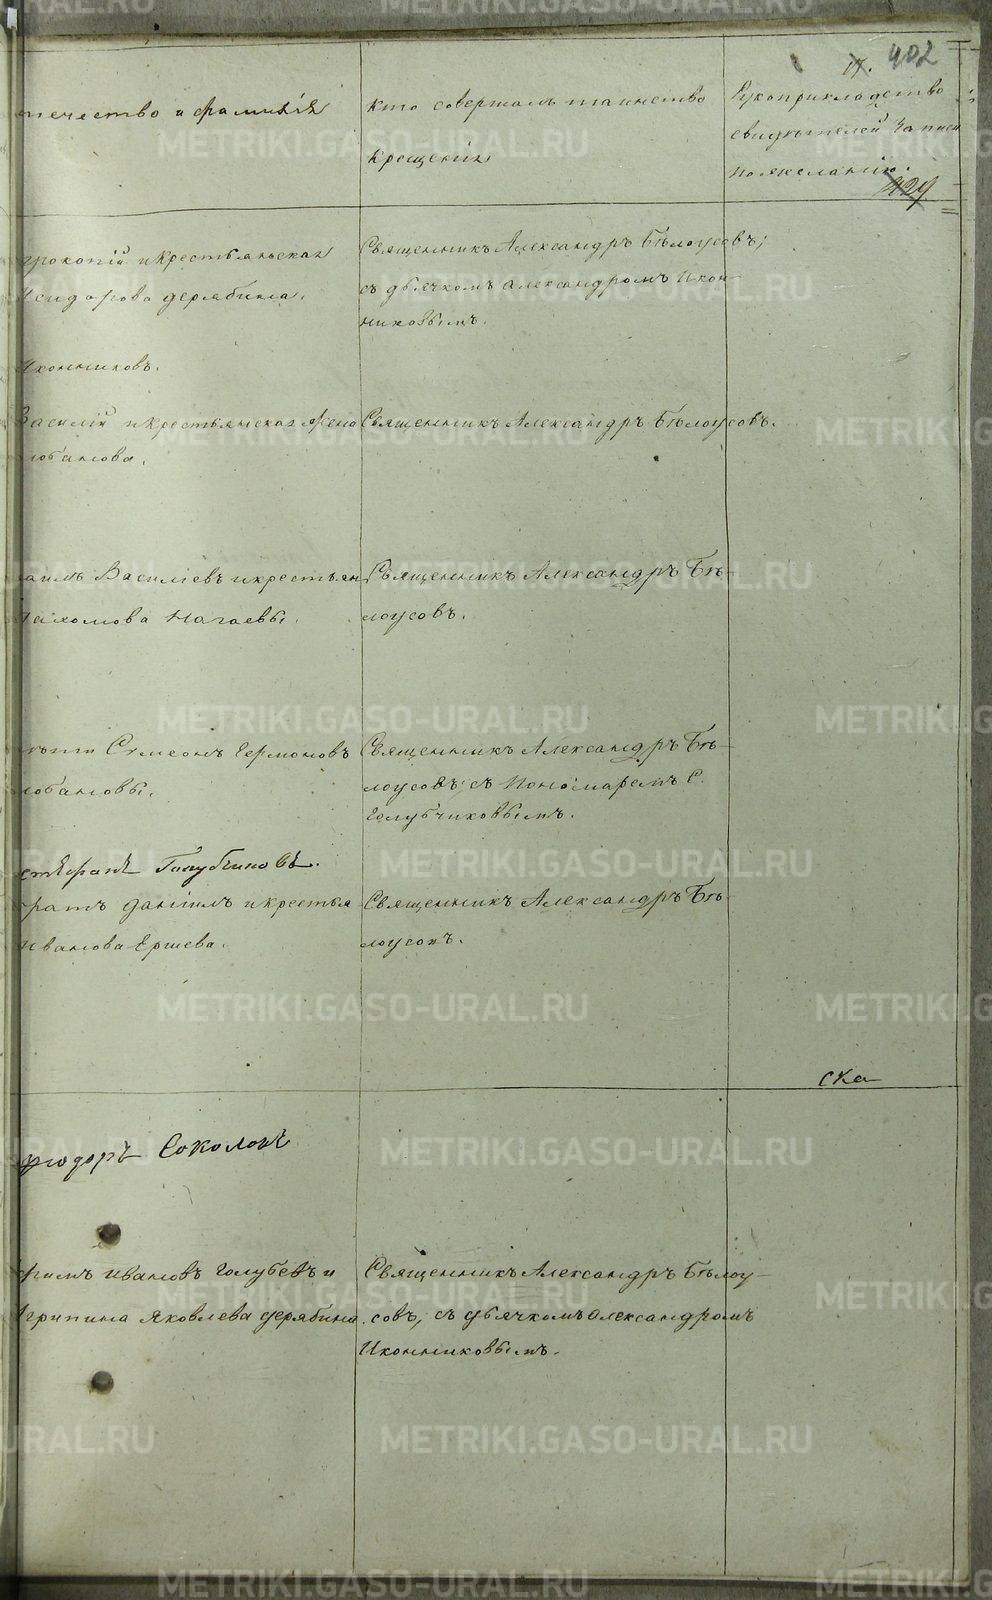 402
17.
течество и фамилія
Кто совершалъ таинство
крещенія
Рукоприкладство
свидѣтелей записи
по желанію.
429
прокопій и крестьянская
Исидорова дерябина.
Священникъ Александръ Бѣлоусовъ;
съ дьячкомъ Александромъ Икон-
никовымъ.
Иконниковъ.
Василій и крестьянская жена
лобанова.
Священникъ Александръ Бѣлоусовъ.
Василіевъ и крестьян
Пахомова Нагаевы.
Священникъ Александръ Бѣ-
лоусовъ.
Симеонъ Ермоновъ
лобановы.
Священникъ Александръ Бѣ-
лоусовъ; съ Пономаремъ С.
Голубчиковымъ.
стефанъ Голубчиковъ.
даніилъ и крестья
Иванова Ершева.
Священникъ Александръ Бѣ-
лоусовъ.
ска
Ѳеодоръ Соколовъ
Ивановъ Голубевъ и
Агрипина Яковлева дерябина.
Священникъ Александръ Бѣлоу-
совъ, съ дьячкомъ Александромъ
Иконниковымъ.
METRIKI.GASO-URAL.RU